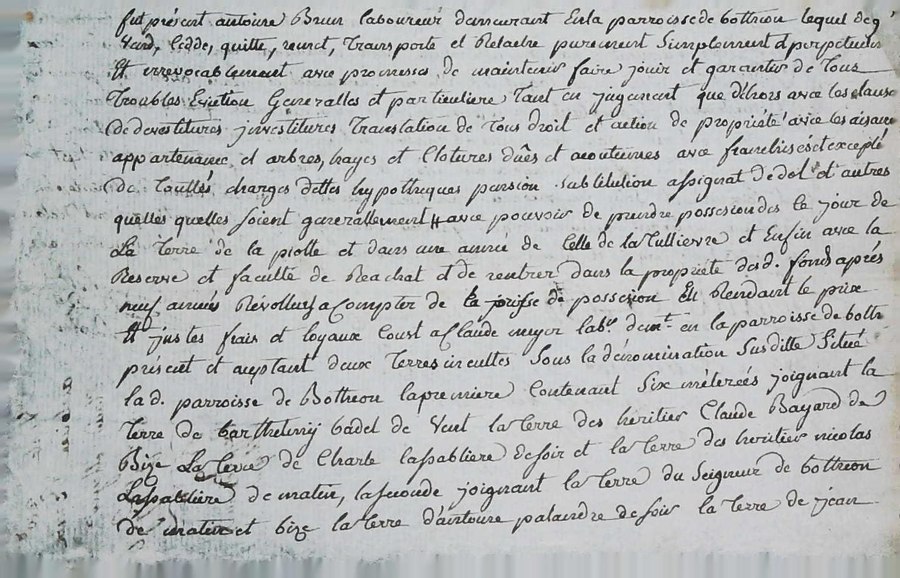 fut présent antoine Brun laboureur demeurant En la parroisse de botheon lequel de g
Vend, Cedde, quitte, remet, Transporte et Relache purement Simplement et perpetuelle
Et irrevocablement avec promesses de maintenir faire jouir et garantir de Tous
Troubles Eviction Generalles et particuliere Tant en jugement que déhors avec les clause
de devestitures investitures Translation de Tous droit et action de propriété avec les aisance
appartenance, et arbres, hayes et Clotures dûes et acoutumes avec franchises et excepté
de touttes charges dettes hypotheques pansion Substitution assignat de dot et autres
quelles quelles soient generallement avec pouvoir de prendre possesion des le jour de
La Terre de la piotte et dans une année de Celle de la Tullievre et Enfin avec la
Reserve et faculté de Reachat et de rentrer dans la propriete desd. fonds aprés
neuf années Revollues a Compter de la prisse de possesion En Rendant le prix
Et justes frais et loyaux Coust a Claude meyer labr. demt. en la parroisse de both
présent et aceptant deux Terres incultes Sous la dénomination Susditte Situé
la d. parroisse de Botheon la premiere Contenant Six méterées joignant la
Terre de barthelmy badel de Vent la terre des héritier Claude Bayard de
Bize La Terre de Charle lasabliere de soir et la terre des heritier nicolas
Lasabliere de matin, la seconde joignant la terre du Seigneur de botheon
de matin et bize la terre d'antoine palandre de soir la terre de jean